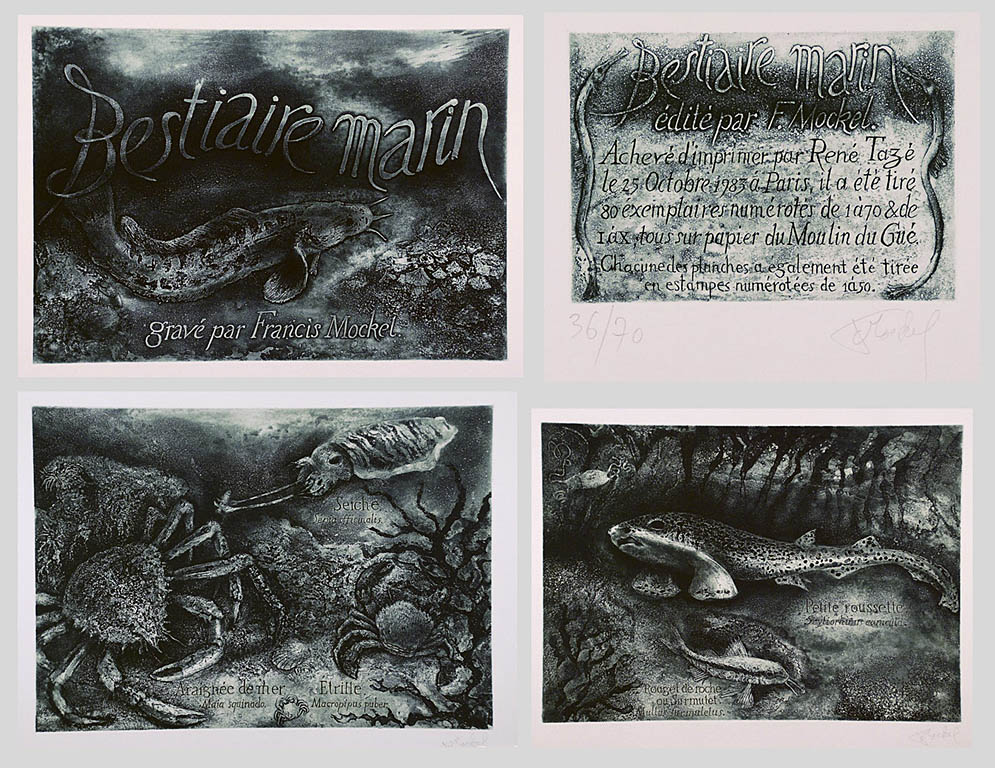 Bestiaire marin
gravé par Francis Mockel.
Bestiaire marin
édité par F. Mockel.
Achevé d'imprimer par René Tazé
le 25 Octobre 1983 à Paris, il a été tiré
80 exemplaires numérotés de 1 à 70 & de
I à X, tous sur papier du Moulin du Gué.
Chacune des planches a egalement été tirée
en estampes numérotées de 1 à 50.
36/70
Seiche
Sepia officinalis.
Araignée de mer
Maia squinado.
Etrille
Macropipus puber.
Petite roussette
Rouget de roche
ou Surmulet.
Mullus surmuletus.